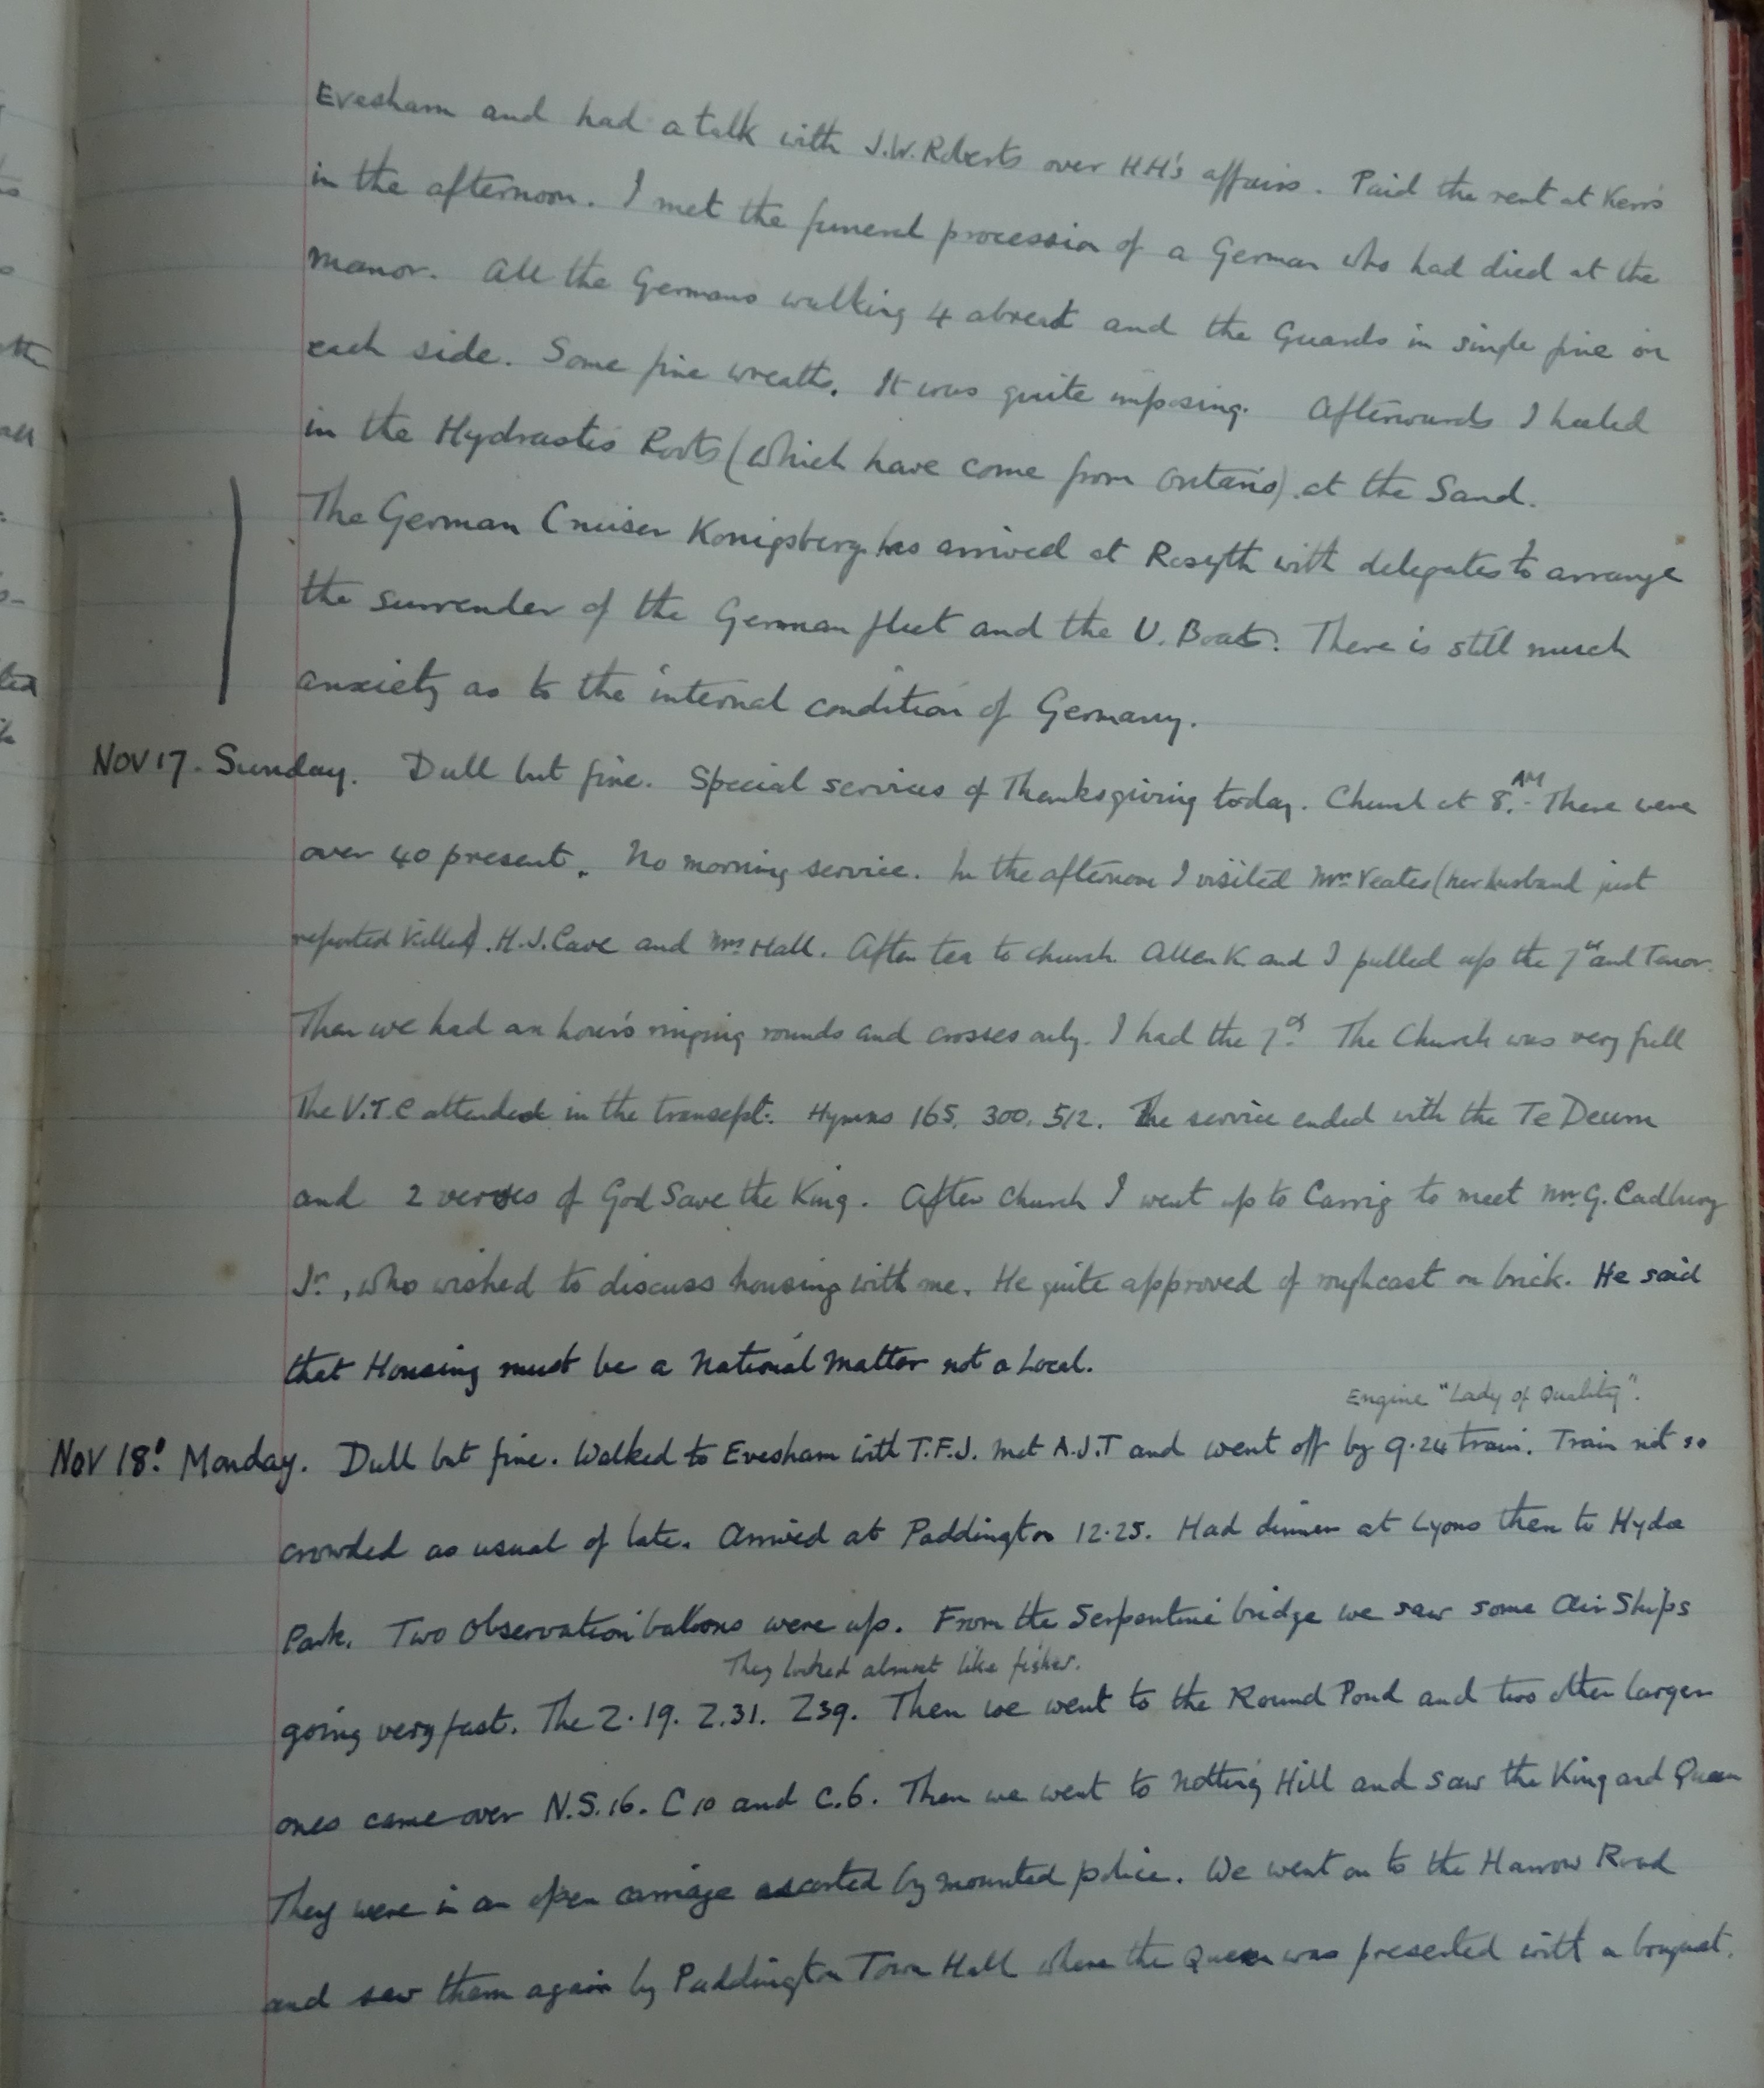 Evesham and had a talk with J.W. Roberts over HH's affairs. Paid the rent at Kerr's
in the afternoon. I met the funeral procession of a German who had died at the
Manor. All the Germans walking 4 abreast and the Guards in single fine on
each side. Some fine wreaths. It was quite imposing. Afterwards I heeled
in the Hydrastis Roots (which have come from Ontario) at the Sand.
The German Cruiser Konigsberg has arrived at Rosyth with delegates to arrange
the surrender of the German fleet and the U. Boats. There is still much
anxiety as to the internal condition of Germany.
NOV 17. Sunday. Dull but fine. Special services of Thanksgiving today. Church at 8. AM There were
over 40 present. No morning service. In the afternoon I visited Mrs Yeates (her husband just
reported killed). H.J. Cave and Mrs Hall. After tea to church. Allen K and I pulled up the 7th and Tenor.
Then we had an hour's ringing rounds and crosses only. I had the 7th. The Church was very full
The V.T.C attended in the transept. Hymns 165. 300. 512. The service ended with the Te Deum
and 2 verses of God Save the King. After church I went up to Carrig to meet Mr. G. Cadbury
Jr., who wished to discuss housing with me. He quite approved of roughcast on brick. He said
that Housing must be a National Matter not a Local.
Engine "Lady of Quality".
Nov 18. Monday. Dull but fine. Walked to Evesham with T.F.J. met A.J.T and went off by 9.24 train. Train not so
crowded as usual of late. Arrived at Paddington 12.25. Had dinner at Lyons then to Hyde
Park. Two Observation balloons were up. From the Serpentine bridge we saw some Air Ships
They looked almost like fishes.
going very fast. The Z.19. Z.31. Z39. Then we went to the Round Pond and two other larger
ones came over N.S.16. C10 and C.6. Then we went to Notting Hill and saw the King and Queen
They were in an open carriage escorted by mounted police. We went on to the Harrow Road
and saw them again by Paddington Town Hall where the Queen was presented with a bouquet.